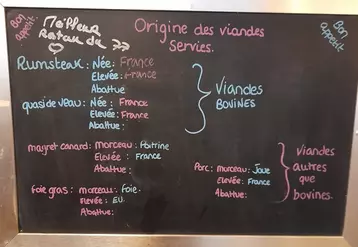 Bon
appétit
Origine des viandes
Servies.
Bon
appétit
Rumsteak: Née: France
Elevée: France
Abattue
quasi de veau: Née: France
Elevée: France
Abattue:
Viandes
BOVINES
magret canard: morceau: Poitrine
Elevée: France
Abattue:
foie gras: morceau: foie.
Elevée: EU
Abattue:
Porc: morceau: Joue
Elevée: France
Abattue:
viandes
autres
que
bovines.